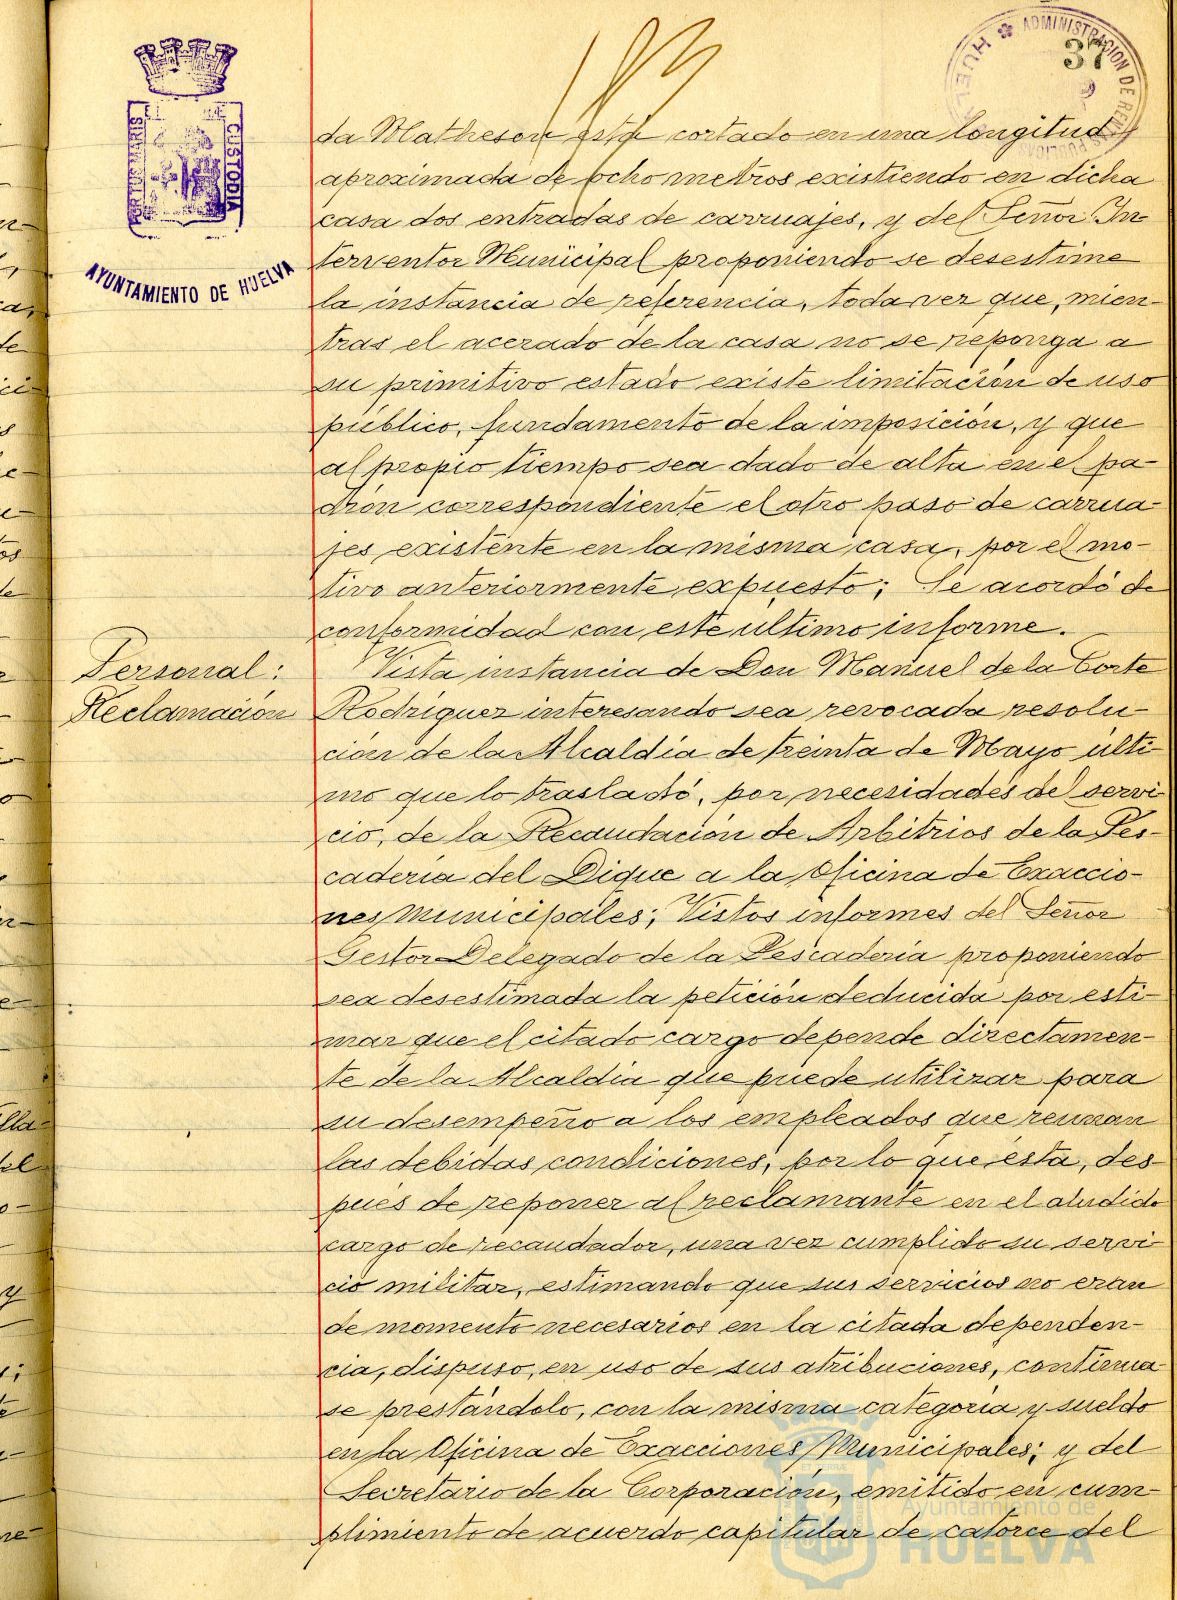 37
ADMINISTRACION DE RENTAS PUBLICAS
HUELVA
PORTUS MARIS
CUSTODIA
AYUNTAMIENTO DE HUELVA
da Matheson está cortado en una longitud
aproximada de ocho metros existiendo en dicha
casa dos entradas de carruajes, y del Señor In-
terventor Municipal proponiendo se desestime
la instancia de referencia, toda vez que, mien-
tras el acerado de la casa no se reponga a
su primitivo estado existe limitación de uso
público, fundamento de la imposición, y que
al propio tiempo sea dado de alta en el pa-
drón correspondiente el otro paso de carrua-
jes existente en la misma casa, por el mo-
tivo anteriormente expuesto; Se acordó de
conformidad con este último informe.
Personal:
Reclamación
Vista instancia de Don Manuel de la Corte
Rodríguez interesando sea revocada resolu-
ción de la Alcaldía de treinta de Mayo últi-
mo que lo trasladó, por necesidades del servi-
cio, de la Recaudación de Arbitrios de la Pes-
cadería del Dique a la Oficina de Exaccio-
nes Municipales; Vistos informes del Señor
Gestor Delegado de la Pescadería proponiendo
sea desestimada la petición deducida por esti-
mar que el citado cargo depende directamen-
te de la Alcaldía que puede utilizar para
su desempeño a los empleados que reunan
las debidas condiciones, por lo que ésta, des-
pués de reponer al reclamante en el aludido
cargo de recaudador, una vez cumplido su servi-
cio militar, estimando que sus servicios no eran
de momento necesarios en la citada dependen-
cia, dispuso, en uso de sus atribuciones, continua-
se prestándolo, con la misma categoría y sueldo
en la Oficina de Exacciones Municipales; y del
Secretario de la Corporación, emitido en cum-
plimiento de acuerdo capitular de catorce del
Ayuntamiento de
HUELVA